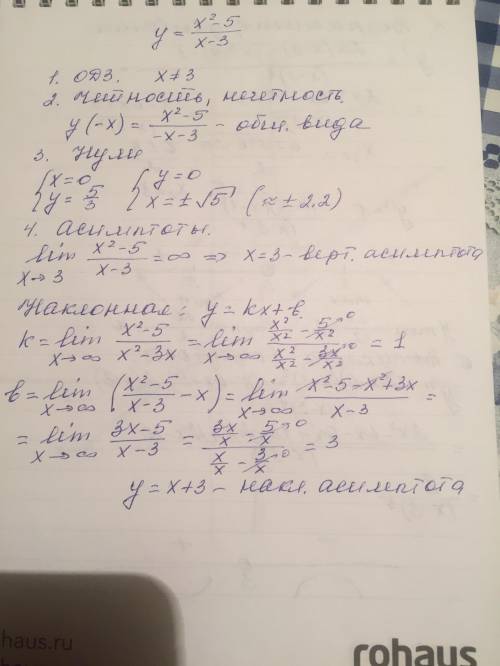 y = (x²-5)/(x-3)
1. ОДЗ. x≠3
2. Четность, нечетность.
y(-x) = (x²-5)/(-x-3) - общ. вида
3. Нули
{x=0 {y=0
{y=5/3 {x=±√5 (≈±2.2)
4. Асимптоты.
lim x→3 (x²-5)/(x-3) = ∞ ⇒ x=3 - верт. асимптота
Наклонная: y=kx+b.
k = lim x→∞ (x²-5)/(x²-3x) = lim x→∞ (x²/x² - 5/x²→0)/(x²/x² - 3x/x²→0) = 1
b = lim x→∞ ((x²-5)/(x-3) - x) = lim x→∞ (x²-5-x²+3x)/(x-3) =
= lim x→∞ (3x-5)/(x-3) = (3x/x - 5/x→0)/(x/x - 3/x→0) = 3
y = x+3 - накл. асимптота
haus.ru
rohaus